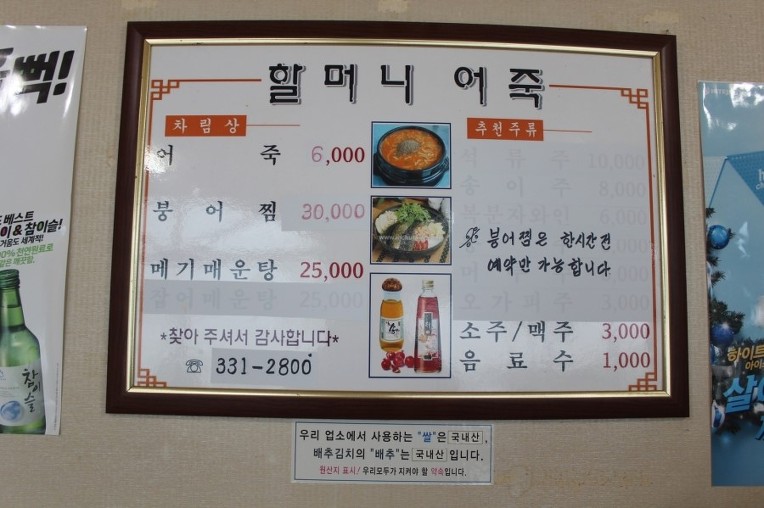 할머니 어죽
차림상
어 죽 6,000
붕어찜 30,000
메기매운탕 25,000
잡어매운탕 25,000
*찾아 주셔서 감사합니다*
☏ 331-2800
추천주류
석 류 주 10,000
송 이 주 8,000
복분자와인 6,000
붕어찜은 한시간전
예약만 가능합니다
오가피주 3,000
소주/맥주 3,000
음료수 1,000
우리 업소에서 사용하는 "쌀"은 국내산,
배추김치의 "배추"는 국내산 입니다.
원산지 표시/ 우리모두가 지켜야 할 약속입니다.
뻑!
베스트
이 & 참이슬!
참이슬
하이트